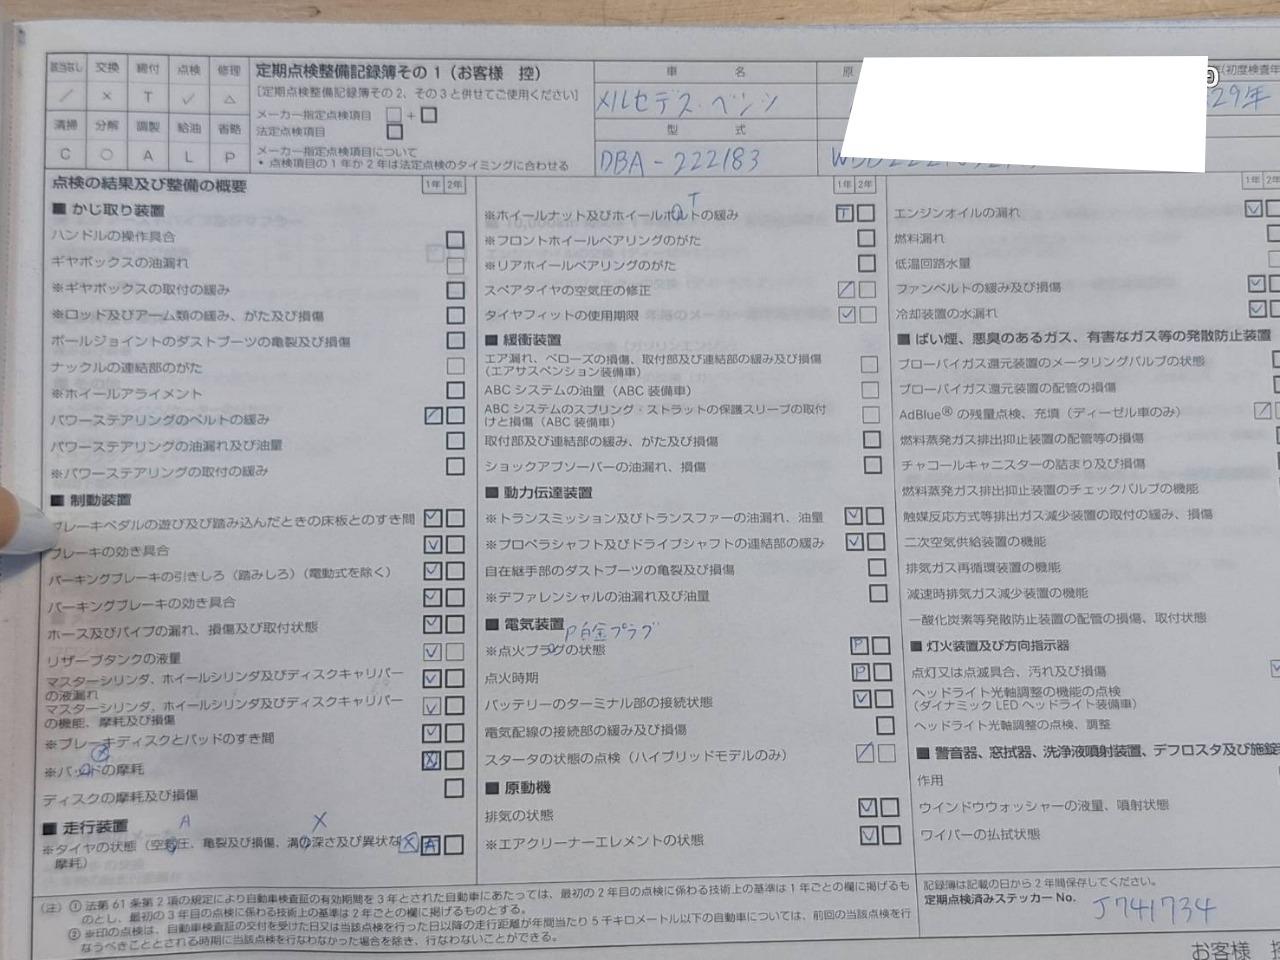 該当なし 交換 締付 点検 修理
／ × T ✓ △
清掃 分解 調整 給油 省略
C ○ A L P
定期点検整備記録簿その1（お客様 控）
［定期点検整備記録簿その2、その3と併せてご使用ください］
メーカー指定点検項目 □＋□
法定点検項目 □
メーカー指定点検項目について
• 点検項目の1年か2年は法定点検のタイミングに合わせる
車 名
メルセデス・ベンツ
型 式
DBA-222183
原
（初度検査年
29年
点検の結果及び整備の概要
1年 2年
■ かじ取り装置
ハンドルの操作具合
ギヤボックスの油漏れ
※ギヤボックスの取付の緩み
※ロッド及びアーム類の緩み、がた及び損傷
ボールジョイントのダストブーツの亀裂及び損傷
ナックルの連結部のがた
※ホイールアライメント
パワーステアリングのベルトの緩み ／
パワーステアリングの油漏れ及び油量
※パワーステアリングの取付の緩み
■ 制動装置
ブレーキペダルの遊び及び踏み込んだときの床板とのすき間 ✓
ブレーキの効き具合 ✓
パーキングブレーキの引きしろ（踏みしろ）（電動式を除く） ✓
パーキングブレーキの効き具合 ✓
ホース及びパイプの漏れ、損傷及び取付状態 ✓
リザーブタンクの液量 ✓
マスターシリンダ、ホイールシリンダ及びディスクキャリパー
の液漏れ ✓
マスターシリンダ、ホイールシリンダ及びディスクキャリパー
の機能、摩耗及び損傷 ✓
※ブレーキディスクとパッドのすき間 ✓
※パッドの摩耗 X
ディスクの摩耗及び損傷
■ 走行装置
A X
※タイヤの状態（空気圧、亀裂及び損傷、溝の深さ及び異状な X A
摩耗）
1年 2年
T
※ホイールナット及びホイールボルトの緩み T
※フロントホイールベアリングのがた
※リアホイールベアリングのがた
スペアタイヤの空気圧の修正 ／
タイヤフィットの使用期限 ✓
■ 緩衝装置
エア漏れ、ベローズの損傷、取付部及び連結部の緩み及び損傷
（エアサスペンション装備車）
ABC システムの油量（ABC 装備車）
ABC システムのスプリング・ストラットの保護スリーブの取付
けと損傷（ABC 装備車）
取付部及び連結部の緩み、がた及び損傷
ショックアブソーバーの油漏れ、損傷
■ 動力伝達装置
※トランスミッション及びトランスファーの油漏れ、油量 ✓
※プロペラシャフト及びドライブシャフトの連結部の緩み ✓
自在継手部のダストブーツの亀裂及び損傷
※デファレンシャルの油漏れ及び油量
■ 電気装置
P白金プラグ
※点火プラグの状態 P
点火時期 P
バッテリーのターミナル部の接続状態 ✓
電気配線の接続部の緩み及び損傷
スタータの状態の点検（ハイブリッドモデルのみ） ／
■ 原動機
排気の状態 ✓
※エアクリーナーエレメントの状態 ✓
1年 2年
エンジンオイルの漏れ ✓
燃料漏れ
低温回路水量
ファンベルトの緩み及び損傷 ✓
冷却装置の水漏れ ✓
■ ばい煙、悪臭のあるガス、有害なガス等の発散防止装置
ブローバイガス還元装置のメータリングバルブの状態
ブローバイガス還元装置の配管の損傷
AdBlue® の残量点検、充填（ディーゼル車のみ） ／
燃料蒸発ガス排出抑止装置の配管等の損傷
チャコールキャニスターの詰まり及び損傷
燃料蒸発ガス排出抑止装置のチェックバルブの機能
触媒反応方式等排出ガス減少装置の取付の緩み、損傷
二次空気供給装置の機能
排気ガス再循環装置の機能
減速時排気ガス減少装置の機能
一酸化炭素等発散防止装置の配管の損傷、取付状態
■ 灯火装置及び方向指示器
点灯又は点滅具合、汚れ及び損傷
ヘッドライト光軸調整の機能の点検
（ダイナミック LED ヘッドライト装備車）
ヘッドライト光軸調整の点検、調整
■ 警音器、窓拭器、洗浄液噴射装置、デフロスタ及び施錠
作用
ウインドウウォッシャーの液量、噴射状態
ワイパーの払拭状態
（注）① 法第 61 条第 2 項の規定により自動車検査証の有効期間を 3 年とされた自動車にあたっては、最初の 2 年目の点検に係わる技術上の基準は 1 年ごとの欄に掲げるも
のとし、最初の 3 年目の点検に係わる技術上の基準は 2 年ごとの欄に掲げるものとする。
② ※印の点検は、自動車検査証の交付を受けた日又は当該点検を行った日以降の走行距離が年間当たり 5 千キロメートル以下の自動車については、前回の当該点検を行
なうべきこととされる時期に当該点検を行なわなかった場合を除き、行なわないことができる。
記録簿は記載の日から 2 年間保存してください。
定期点検済みステッカー No. J741734
お客様 控